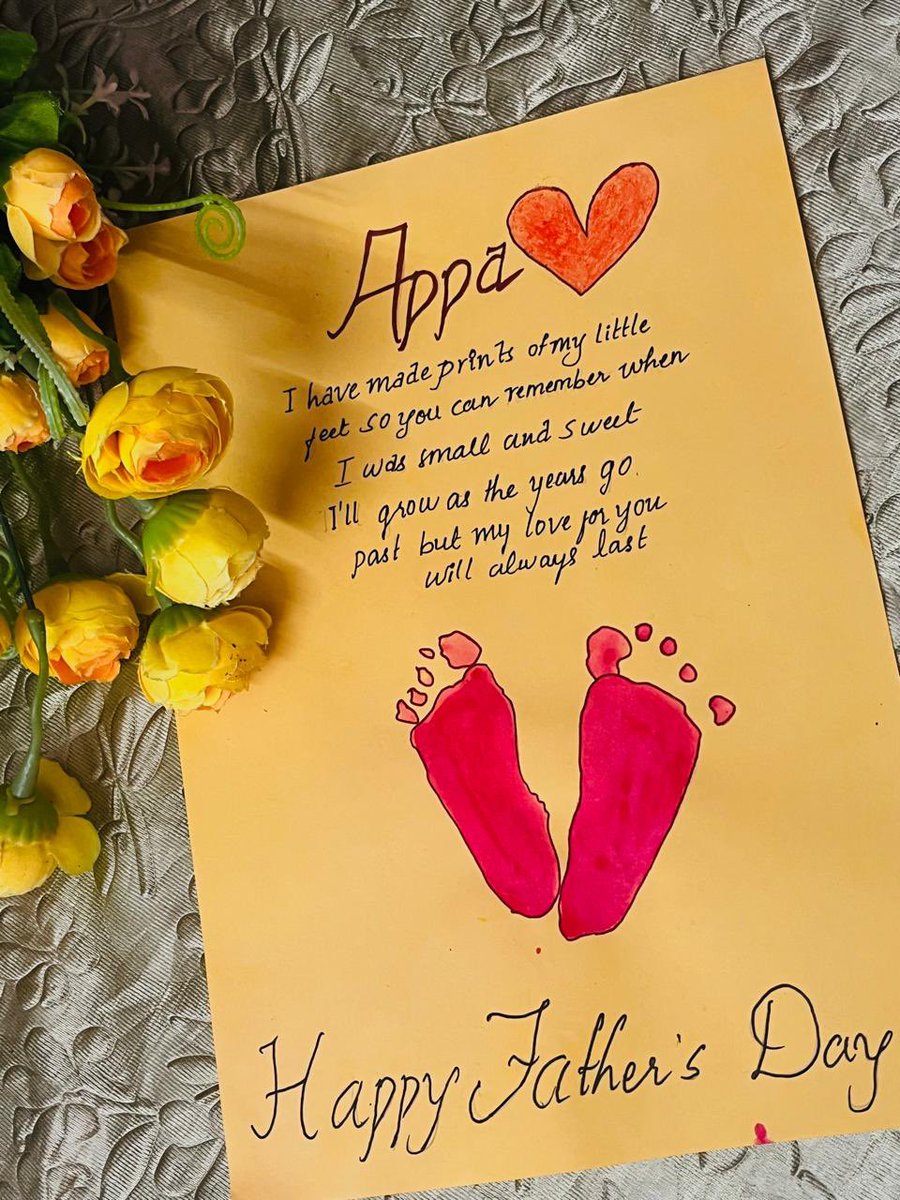 Appa
I have made prints of my little
feet so you can remember when
I was small and sweet
I'll grow as the years go.
past but my love for you
will always last
Happy Father's Day